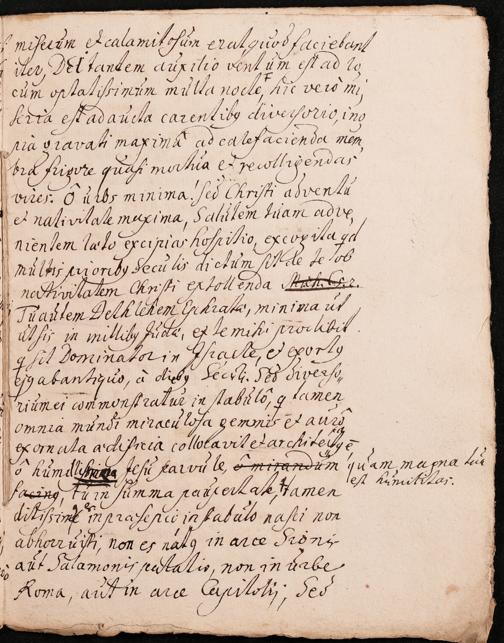 miserum et calamitosum erat quod faciebant
iter, Dei tantem auxilio ventum est ad lo,
cum optatissimum multa nocte, hic vero mi,
seria est adaucta carentibq diversorio, ino
pia gravati maxima ad calefacienda mem,
bra frigore quasi mortua et recolligendas
vires. O urbs minima! sed Christi adventu
et nativitate maxima, Salutem tuam adve,
nientem lato excipias hospitio, excogita qd
multis prioribq seculis dictum sit de te ob
nativitatem Christi extollenda
Tu autem Bethlehem Ephrata, minima ut
ut sis in millibq Juda, ex te mihi prodibit
q sit Dominator in Israele, et exortq
ejq ab antiquo, a diebq Seculi. Sed diverso,
rium ei commonstratur in stabulo, q tamen
omnia mundi miraculosa gemmis et auro
exornata adificia collocavit et architectq e
o humillime Jesu parvule, o mirandum quam magna tua
est humilitas.
tu in summa paupertate, tamen
ditissime in praesepii in stabulo nasci non
abhorruisti, non es natq in arce Sionis
aut Salamonis palatio, non in urbe
Roma, aut in arce Capitolij, Sed